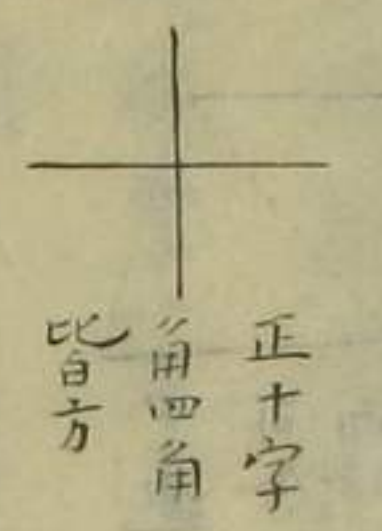 正十字
角四角
皆方